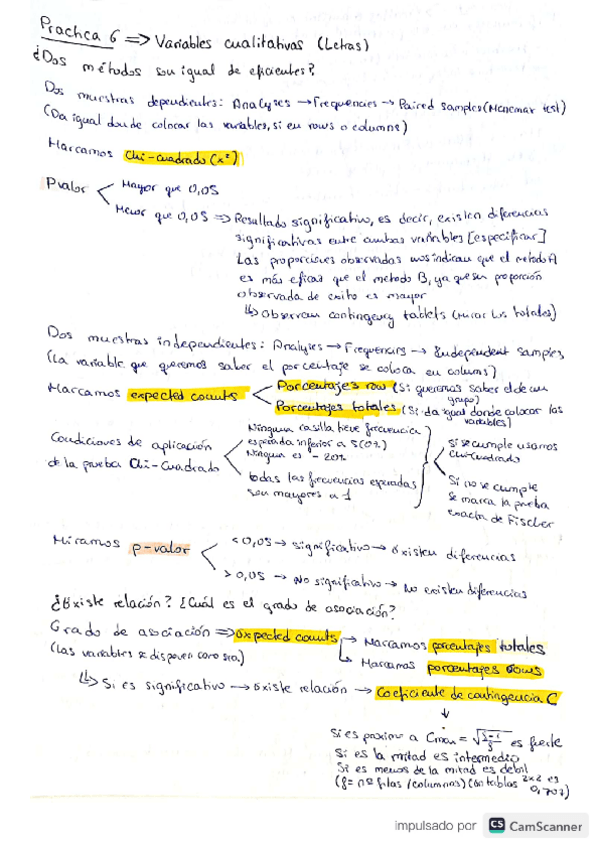 Practica 6 => Variables cualitativas (Letras)
¿Dos métodos son igual de eficientes?
Dos muestras dependientes: Analyses → Frequencies → Paired samples (Mcnemar test)
(Da igual donde colocar las variables, si en rows o columns)
Marcamos Chi-cuadrado (x²)
Pvalor
Mayor que 0,05
Menor que 0,05 => Resultado significativo, es decir, existen diferencias
significativas entre ambas variables [especificar]
Las proporciones observadas nos indican que el metodo A
es más eficaz que el metodo B, ya que su proporción
observada de exito es mayor
↳ Observar contingency tables (mirar los totales)
Dos muestras independientes: Analyses → Frequencies → Independent samples
(La variable que queremos saber el porcentaje se coloca en column)
Marcamos expected counts
Porcentajes row (Si queremos saber el de un
grupo)
Porcentajes totales (Si da igual donde colocar las
variables)
Condiciones de aplicación
de la prueba Chi-Cuadrado
Ninguna casilla tiene frecuencia
esperada inferior a 5 (0%)
Ninguna es - 20%
todas las frecuencias esperadas
son mayores a 1
Si se cumple usamos
Chi-cuadrado
Si no se cumple
se marca la prueba
exacta de Fischer
Miramos p-valor
< 0,05 → significativo → existen diferencias
> 0,05 → No significativo → No existen diferencias
¿Existe relación? ¿Cuál es el grado de asociación?
Grado de asociación => expected counts → Marcamos porcentajes totales
(Las variables se disponen como sea)
↳ Marcamos porcentajes rows
↳ Si es significativo → existe relación → Coeficiente de contingencia C
↓
Si es proximo a Cmax = √(f-1/f) es fuerte
Si es la mitad es intermedio
Si es menos de la mitad es debil
(f = nº filas / columnas) (en tablas 2x2 es
0,707)
impulsado por CS CamScanner